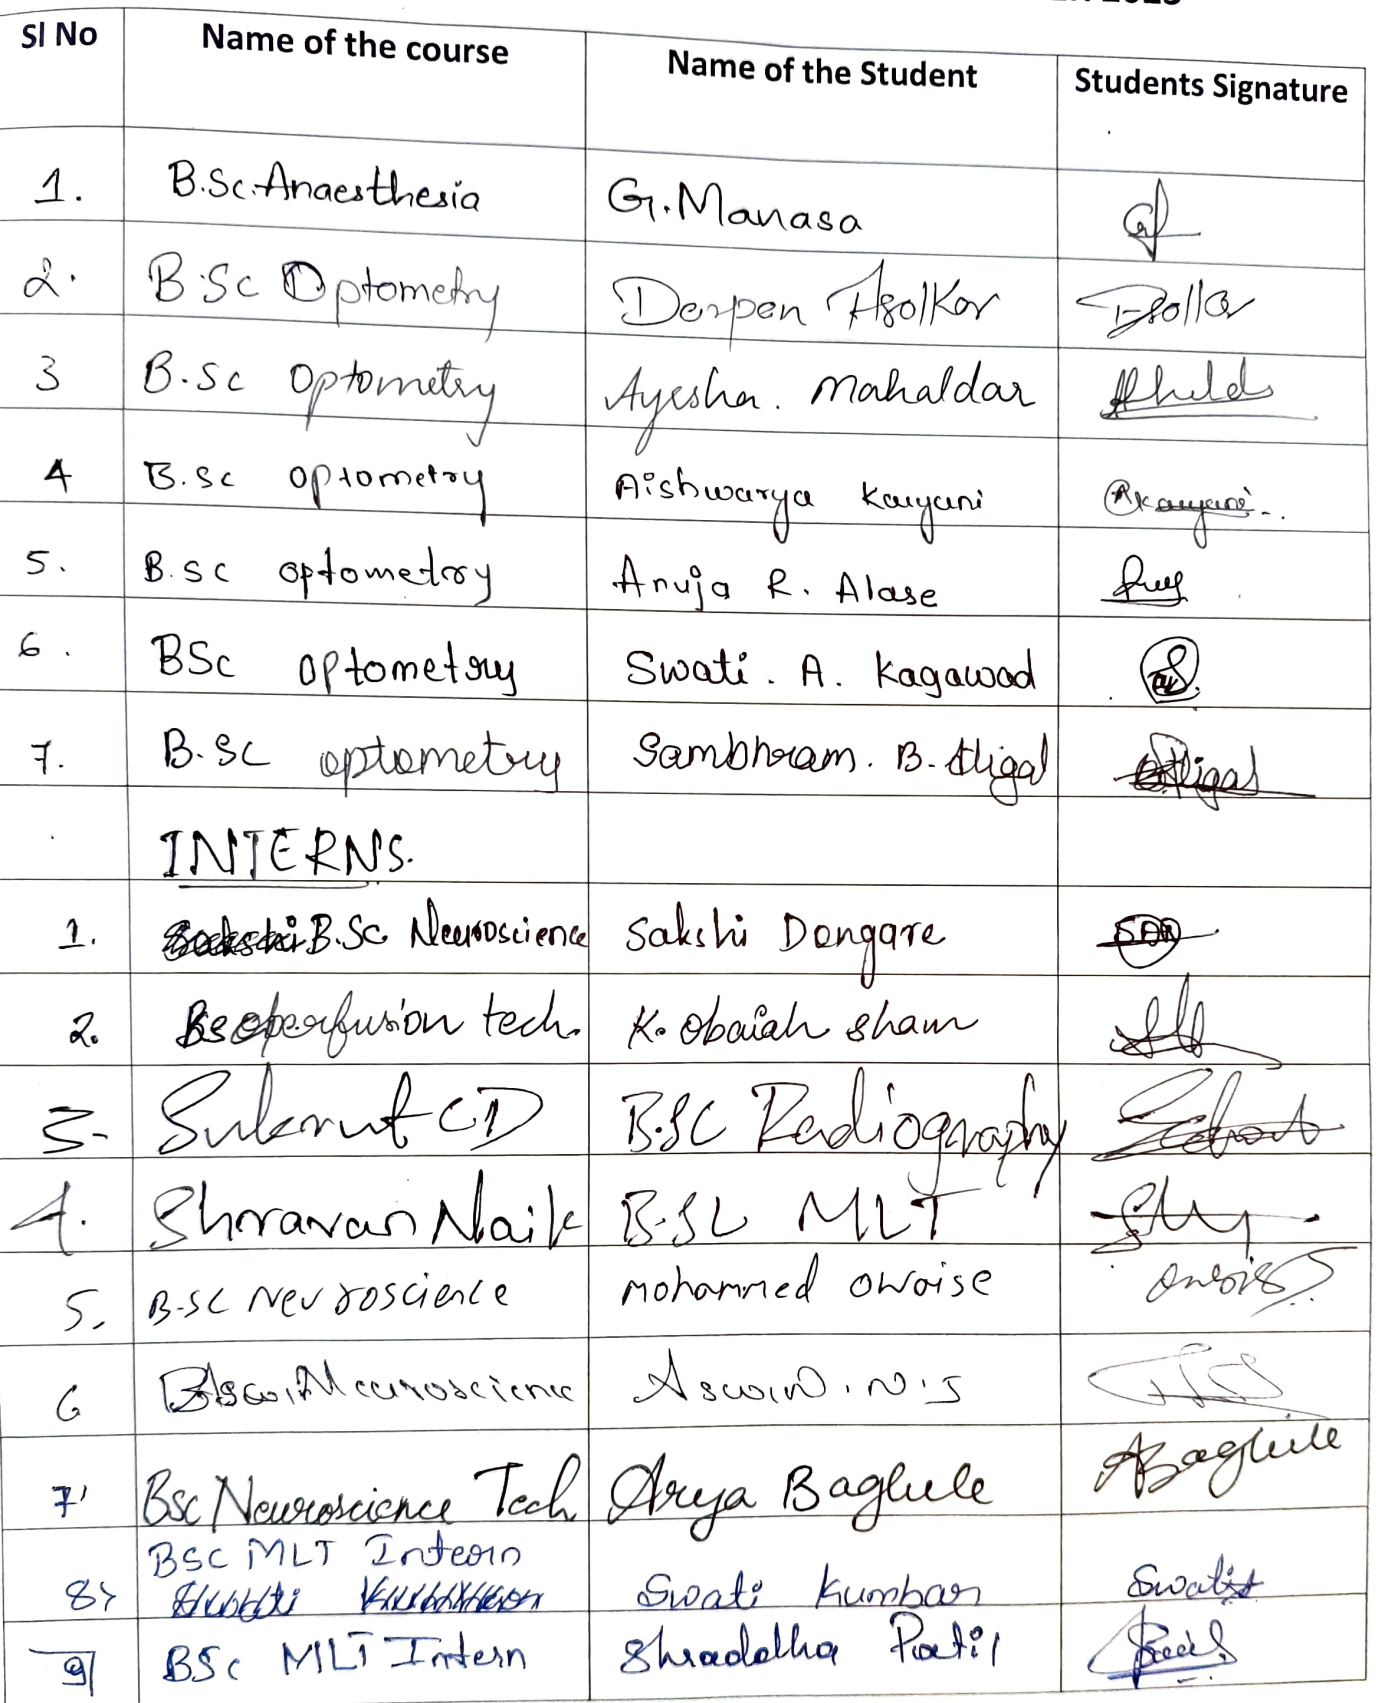 2023
Sl No Name of the course Name of the Student Students Signature
1. B.Sc.Anaesthesia G.Manasa
2. B.Sc Optometry Darpan Asolkar
3 B.Sc Optometry Ayesha. Mahaldar
4 B.Sc optometry Aishwarya Kaiyani
5. B.SC optometry Anuja R. Alase
6. BSc optometry Swati. A. Kagawad
7. B.SC optometry Sambhram. B. Aligal
INTERNS.
1. B.Sc Neuroscience Sakshi Dongare
2. Bscperfusion tech. K. Obaiah sham
3. Sukrut CD B.SC Radiography
4. Shravan Naik B.SC MLT
5. B.SC Neuroscience Mohammed Owaise
6 Neuroscience Aswin.N.S
7 Bsc Neuroscience Tech Arya Baghele
8> BSC MLT Intern Swati Kumbar Swati
9 BSc MLT Intern Shraddha Patil